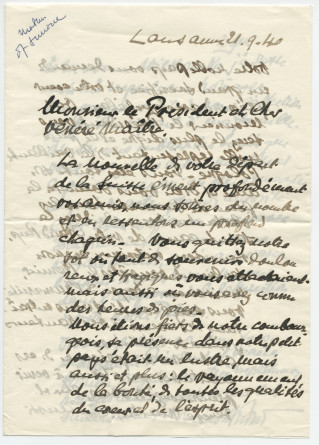 Lausanne 21.9.40
Monsieur le Président et Cher
Vénéré Maître,
La nouvelle de votre départ
de la Suisse émeut profondément
vos amis, nous sommes du nombre
et en ressentons un profond
chagrin. Vous quittez notre
sol où tant de souvenirs doulou
reux et tragiques vous attachaient
mais aussi où vous avez connu
des heures
Nous étions fiers de notre combour
geois sa présence dans notre petit
pays était un lustre, mais
aussi et plus: le rayonnement
de la bonté, de toutes les qualités
du coeur et de l'esprit.